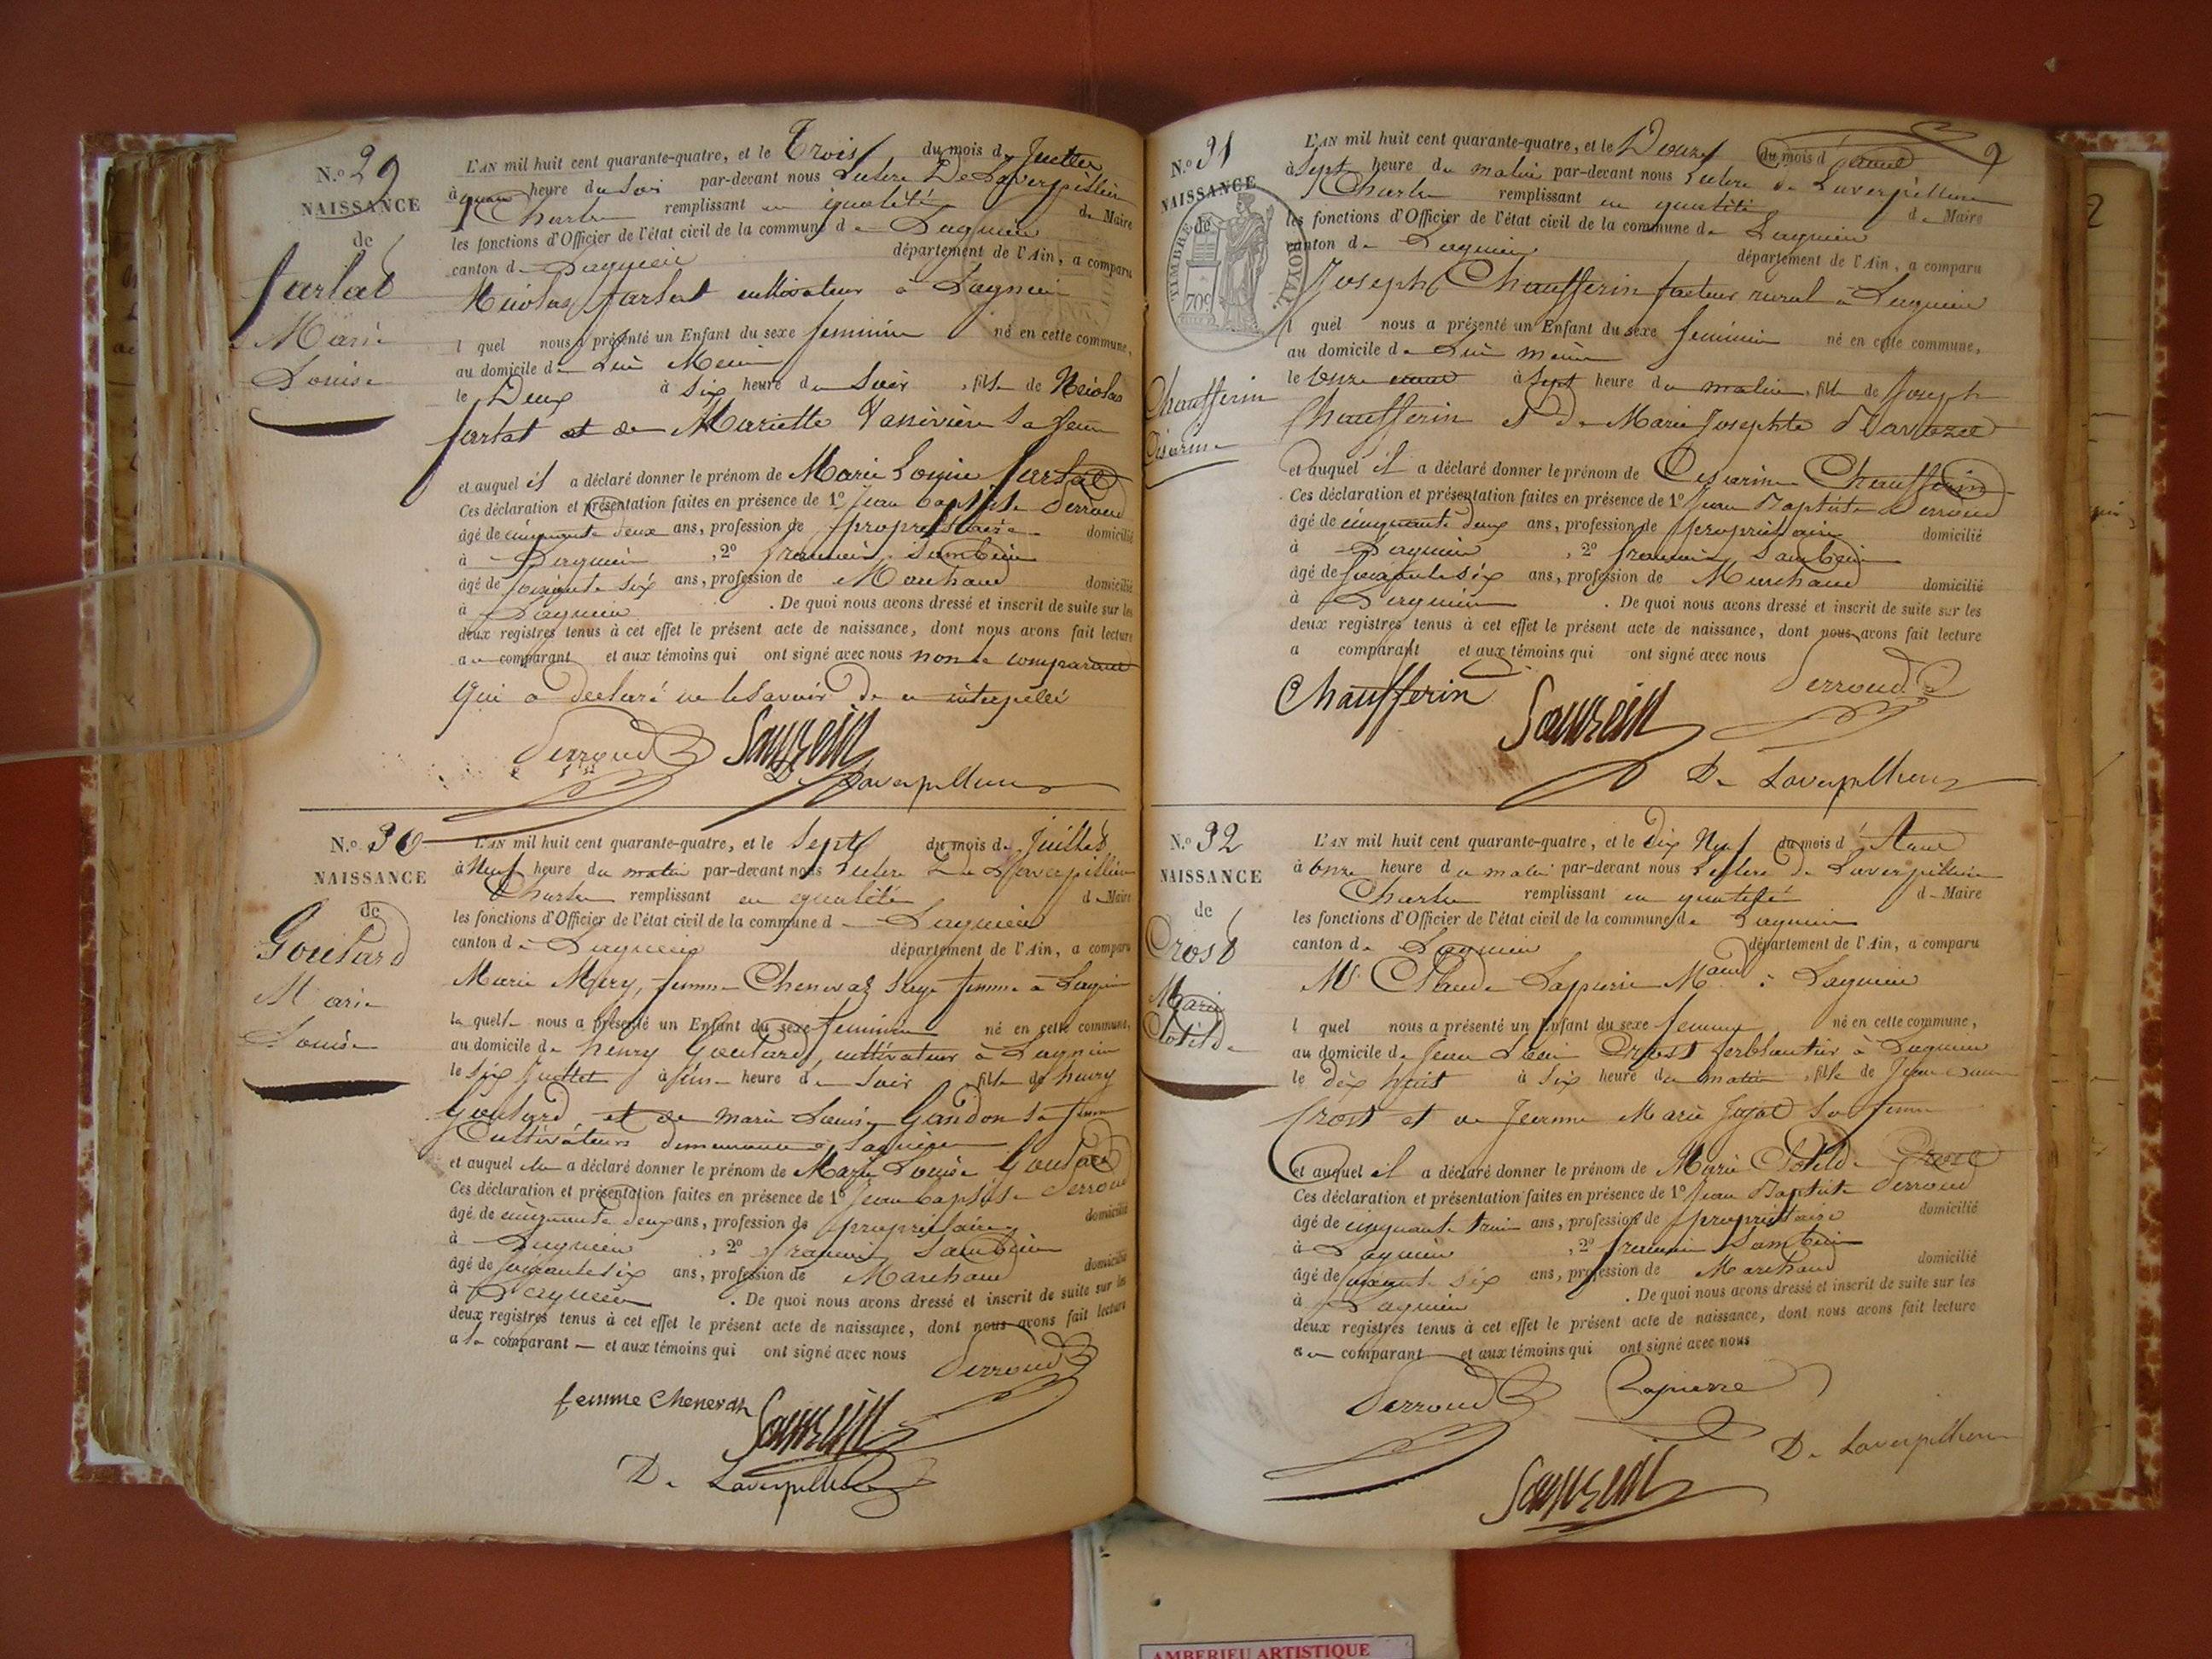 N.o 29
NAISSANCE
de
farlat
Marie
Louise
L'AN mil huit cent quarante-quatre, et le Trois du mois de Juillet
à quatre heure du Soir par-devant nous De Laverpillier
Charles remplissant en qualité de Maire
les fonctions d'Officier de l'état civil de la commune de Lagnieu
canton de Lagnieu département de l'Ain, a comparu
Nicolas farlat cultivateur à Lagnieu
l quel nous a présenté un Enfant du sexe feminin né en cette commune,
au domicile de Lui Meme
le Deux à six heure du Soir, fille de Nicolas
farlat et de Mariette sa femme
et auquel il a déclaré donner le prénom de Marie Louise farlat
Ces déclaration et présentation faites en présence de 1º Jean Baptiste Perroud
âgé de cinquante deux ans, profession de propriétaire domicilié
à Lagnieu, 2º françois
âgé de soixante six ans, profession de Marchand domicilié
à Lagnieu. De quoi nous avons dressé et inscrit de suite sur les
deux registres tenus à cet effet le présent acte de naissance, dont nous avons fait lecture
au comparant et aux témoins qui ont signé avec nous non le comparant
qui a declaré ne le savoir de ce interpellé
Perroud
De Laverpilliere
N.o 30
NAISSANCE
de
Goutard
Marie
Louise
L'AN mil huit cent quarante-quatre, et le Sept du mois de Juillet
à Neuf heure du matin par-devant nous De Laverpilliere
Charles remplissant en qualité de Maire
les fonctions d'Officier de l'état civil de la commune de Lagnieu
canton de Lagnieu département de l'Ain, a comparu
Marie Mery, femme Chenevaz Sage femme à Lagnieu
la quelle nous a présenté un Enfant du sexe feminin né en cette commune,
au domicile de henry Goutard, cultivateur à Lagnieu
le six Juillet à heure de Soir, fille de henry
Goutard et de marie Louise Gandon sa femme
Cultivateurs demeurant à Lagnieu
et auquel elle a déclaré donner le prénom de Marie Louise Goutard
Ces déclaration et présentation faites en présence de 1º Jean Baptiste Perroud
âgé de cinquante deux ans, profession de propriétaire domicilié
à Lagnieu, 2º françois
âgé de soixante six ans, profession de Marchand domicilié
à Lagnieu. De quoi nous avons dressé et inscrit de suite sur les
deux registres tenus à cet effet le présent acte de naissance, dont nous avons fait lecture
a la comparant et aux témoins qui ont signé avec nous
Perroud
femme Chenevaz
De Laverpilliere
N.o 31
NAISSANCE
de
TIMBRE ROYAL
70c
Chaufferin
Césarine
L'AN mil huit cent quarante-quatre, et le Douze du mois d
à Sept heure du matin par-devant nous de Laverpilliere
Charles remplissant en qualité de Maire
les fonctions d'Officier de l'état civil de la commune de Lagnieu
canton de Lagnieu département de l'Ain, a comparu
Joseph Chaufferin facteur rural à Lagnieu
l quel nous a présenté un Enfant du sexe feminin né en cette commune,
au domicile de Lui même
le onze à Sept heure du matin, fille de Joseph
Chaufferin et de Marie Josephte
et auquel il a déclaré donner le prénom de Cesarine Chaufferin
Ces déclaration et présentation faites en présence de 1º Jean Baptiste Perroud
âgé de cinquante deux ans, profession de propriétaire domicilié
à Lagnieu, 2º françois
âgé de soixante six ans, profession de Marchand domicilié
à Lagnieu. De quoi nous avons dressé et inscrit de suite sur les
deux registres tenus à cet effet le présent acte de naissance, dont nous avons fait lecture
a comparant et aux témoins qui ont signé avec nous
Perroud
Chaufferin
De Laverpilliere
N.o 32
NAISSANCE
de
Crost
Marie
Clotilde
L'AN mil huit cent quarante-quatre, et le Dix Neuf du mois d'Aout
à onze heure du matin par-devant nous De Laverpilliere
Charles remplissant en qualité de Maire
les fonctions d'Officier de l'état civil de la commune de Lagnieu
canton de Lagnieu département de l'Ain, a comparu
Mr Claude Lapierre à Lagnieu
l quel nous a présenté un Enfant du sexe né en cette commune,
au domicile de Jean Crost ferblantier à Lagnieu
le dix huit à six heure du matin, fille de Jean
Crost et de Jeanne Marie sa femme
et auquel il a déclaré donner le prénom de Marie Clotilde Crost
Ces déclaration et présentation faites en présence de 1º Jean Baptiste Perroud
âgé de cinquante trois ans, profession de propriétaire domicilié
à Lagnieu, 2º françois
âgé de soixante six ans, profession de Marchand domicilié
à Lagnieu. De quoi nous avons dressé et inscrit de suite sur les
deux registres tenus à cet effet le présent acte de naissance, dont nous avons fait lecture
au comparant et aux témoins qui ont signé avec nous
Perroud Lapierre
De Laverpilliere
AMBERIEU ARTISTIQUE